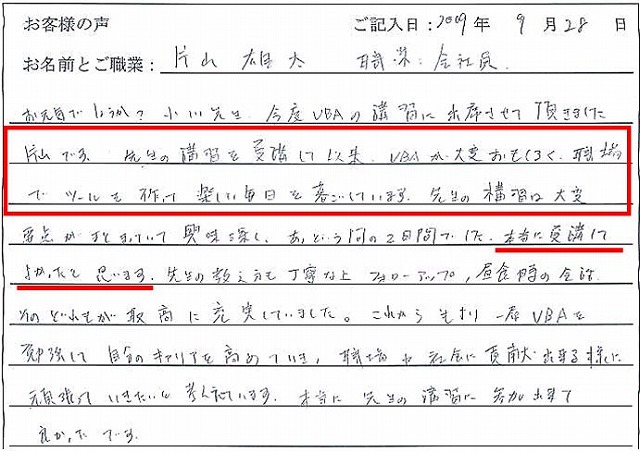 お客様の声 ご記入日：2009年 9月28日
お名前とご職業：片山 雄太 職業：会社員.
お元気でしょうか？小川先生. 今度VBAの講習に出席させて頂きました
片山です. 先生の講習を受講して以来. VBAが大変おもしろく. 職場
でツールを作って楽しい毎日を過ごしています. 先生の講習は大変
要点がまとまっていて興味深く. あっという間の2日間でした. 本当に受講して
よかったと思います. 先生の教え方も丁寧な上 フォローアップ, 昼食時の会話
そのどれもが最高に充実していました。これからもより一層VBAを
勉強して自分のキャリアを高めていき, 職場や社会に貢献出来る様に
頑張っていきたいと考えています. 本当に先生の講習に参加出来て
良かったです.